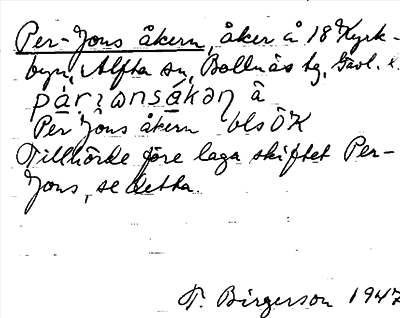 Per-Jons åkern, åker å 18 Kyrk-
byn, Alfta sn, Bollnäs tg, Gävl. l.
pàrɩonsákəṇ å
Per Jons åkern bls ÖK
Tillhörde före laga skiftet Per-
Jons, se detta.
T. Birgerson 1947